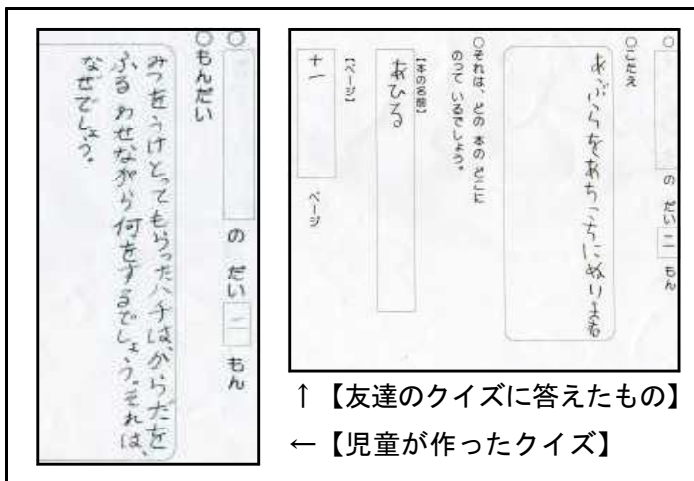 ○
の だい 二 もん
○もんだい
みつをうけとってもらったハチは、からだを
ふるわせながら何をするでしょう。それは、
なぜでしょう。
○
の だい 二 もん
○こたえ
あぶらをあちこちにぬります
○それは、どの 本の どこに
のって いるでしょう。
【本の名前】
あひる
【ページ】
十一 ページ
↑【友達のクイズに答えたもの】
←【児童が作ったクイズ】